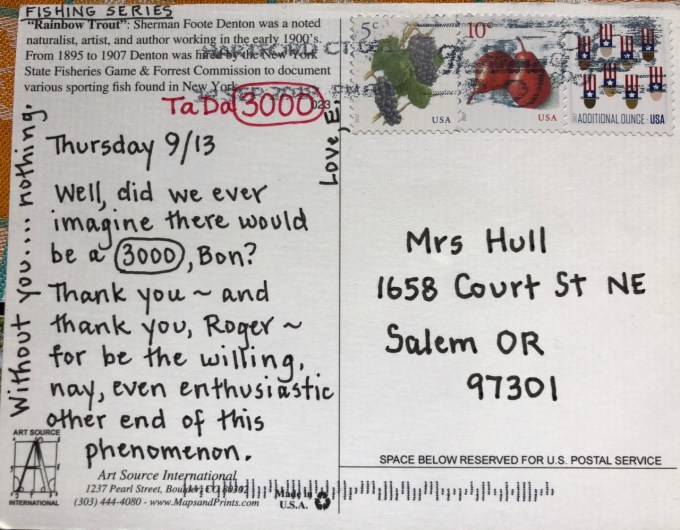 FISHING SERIES
"Rainbow Trout": Sherman Foote Denton was a noted
naturalist, artist, and author working in the early 1900's.
From 1895 to 1907 Denton was hired by the New York
State Fisheries Game & Forrest Commission to document
various sporting fish found in New York.
TaDa 3000
023
Thursday 9/13
Well, did we ever
imagine there would
be a 3000, Bon?
Thank you ~ and
thank you, Roger ~
for be the willing,
nay, even enthusiastic
other end of this
phenomenon.
Without you.... nothing.
Love, E.
ART SOURCE
INTERNATIONAL
Art Source International
1237 Pearl Street, Boulder, CO 80302
(303) 444-4080 - www.MapsandPrints.com
Made in
U.S.A.
HARTFORD CT
5c
USA
10c
USA
ADDITIONAL OUNCE USA
Mrs Hull
1658 Court St NE
Salem OR
97301
SPACE BELOW RESERVED FOR U.S. POSTAL SERVICE